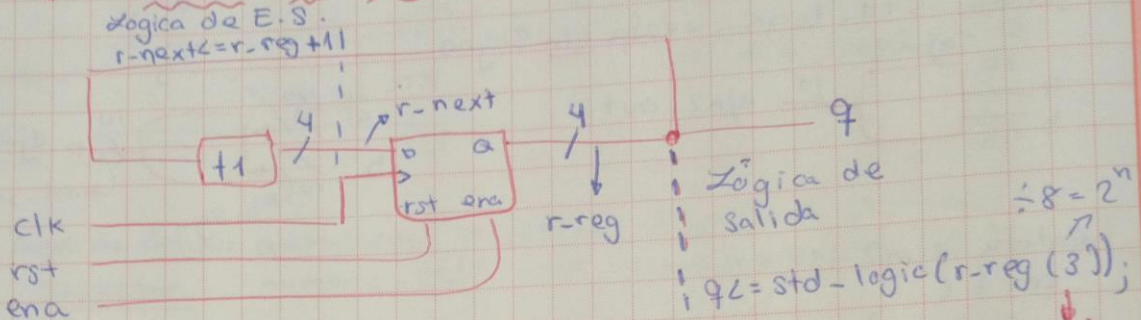 Logica de E.S.
r-next<=r-reg+1
4
r-next
4
q
+1
D
Q
rst
ena
r-reg
Lógica de
salida
÷8=2^n
clk
rst
ena
q<=std-logic(r-reg(3));